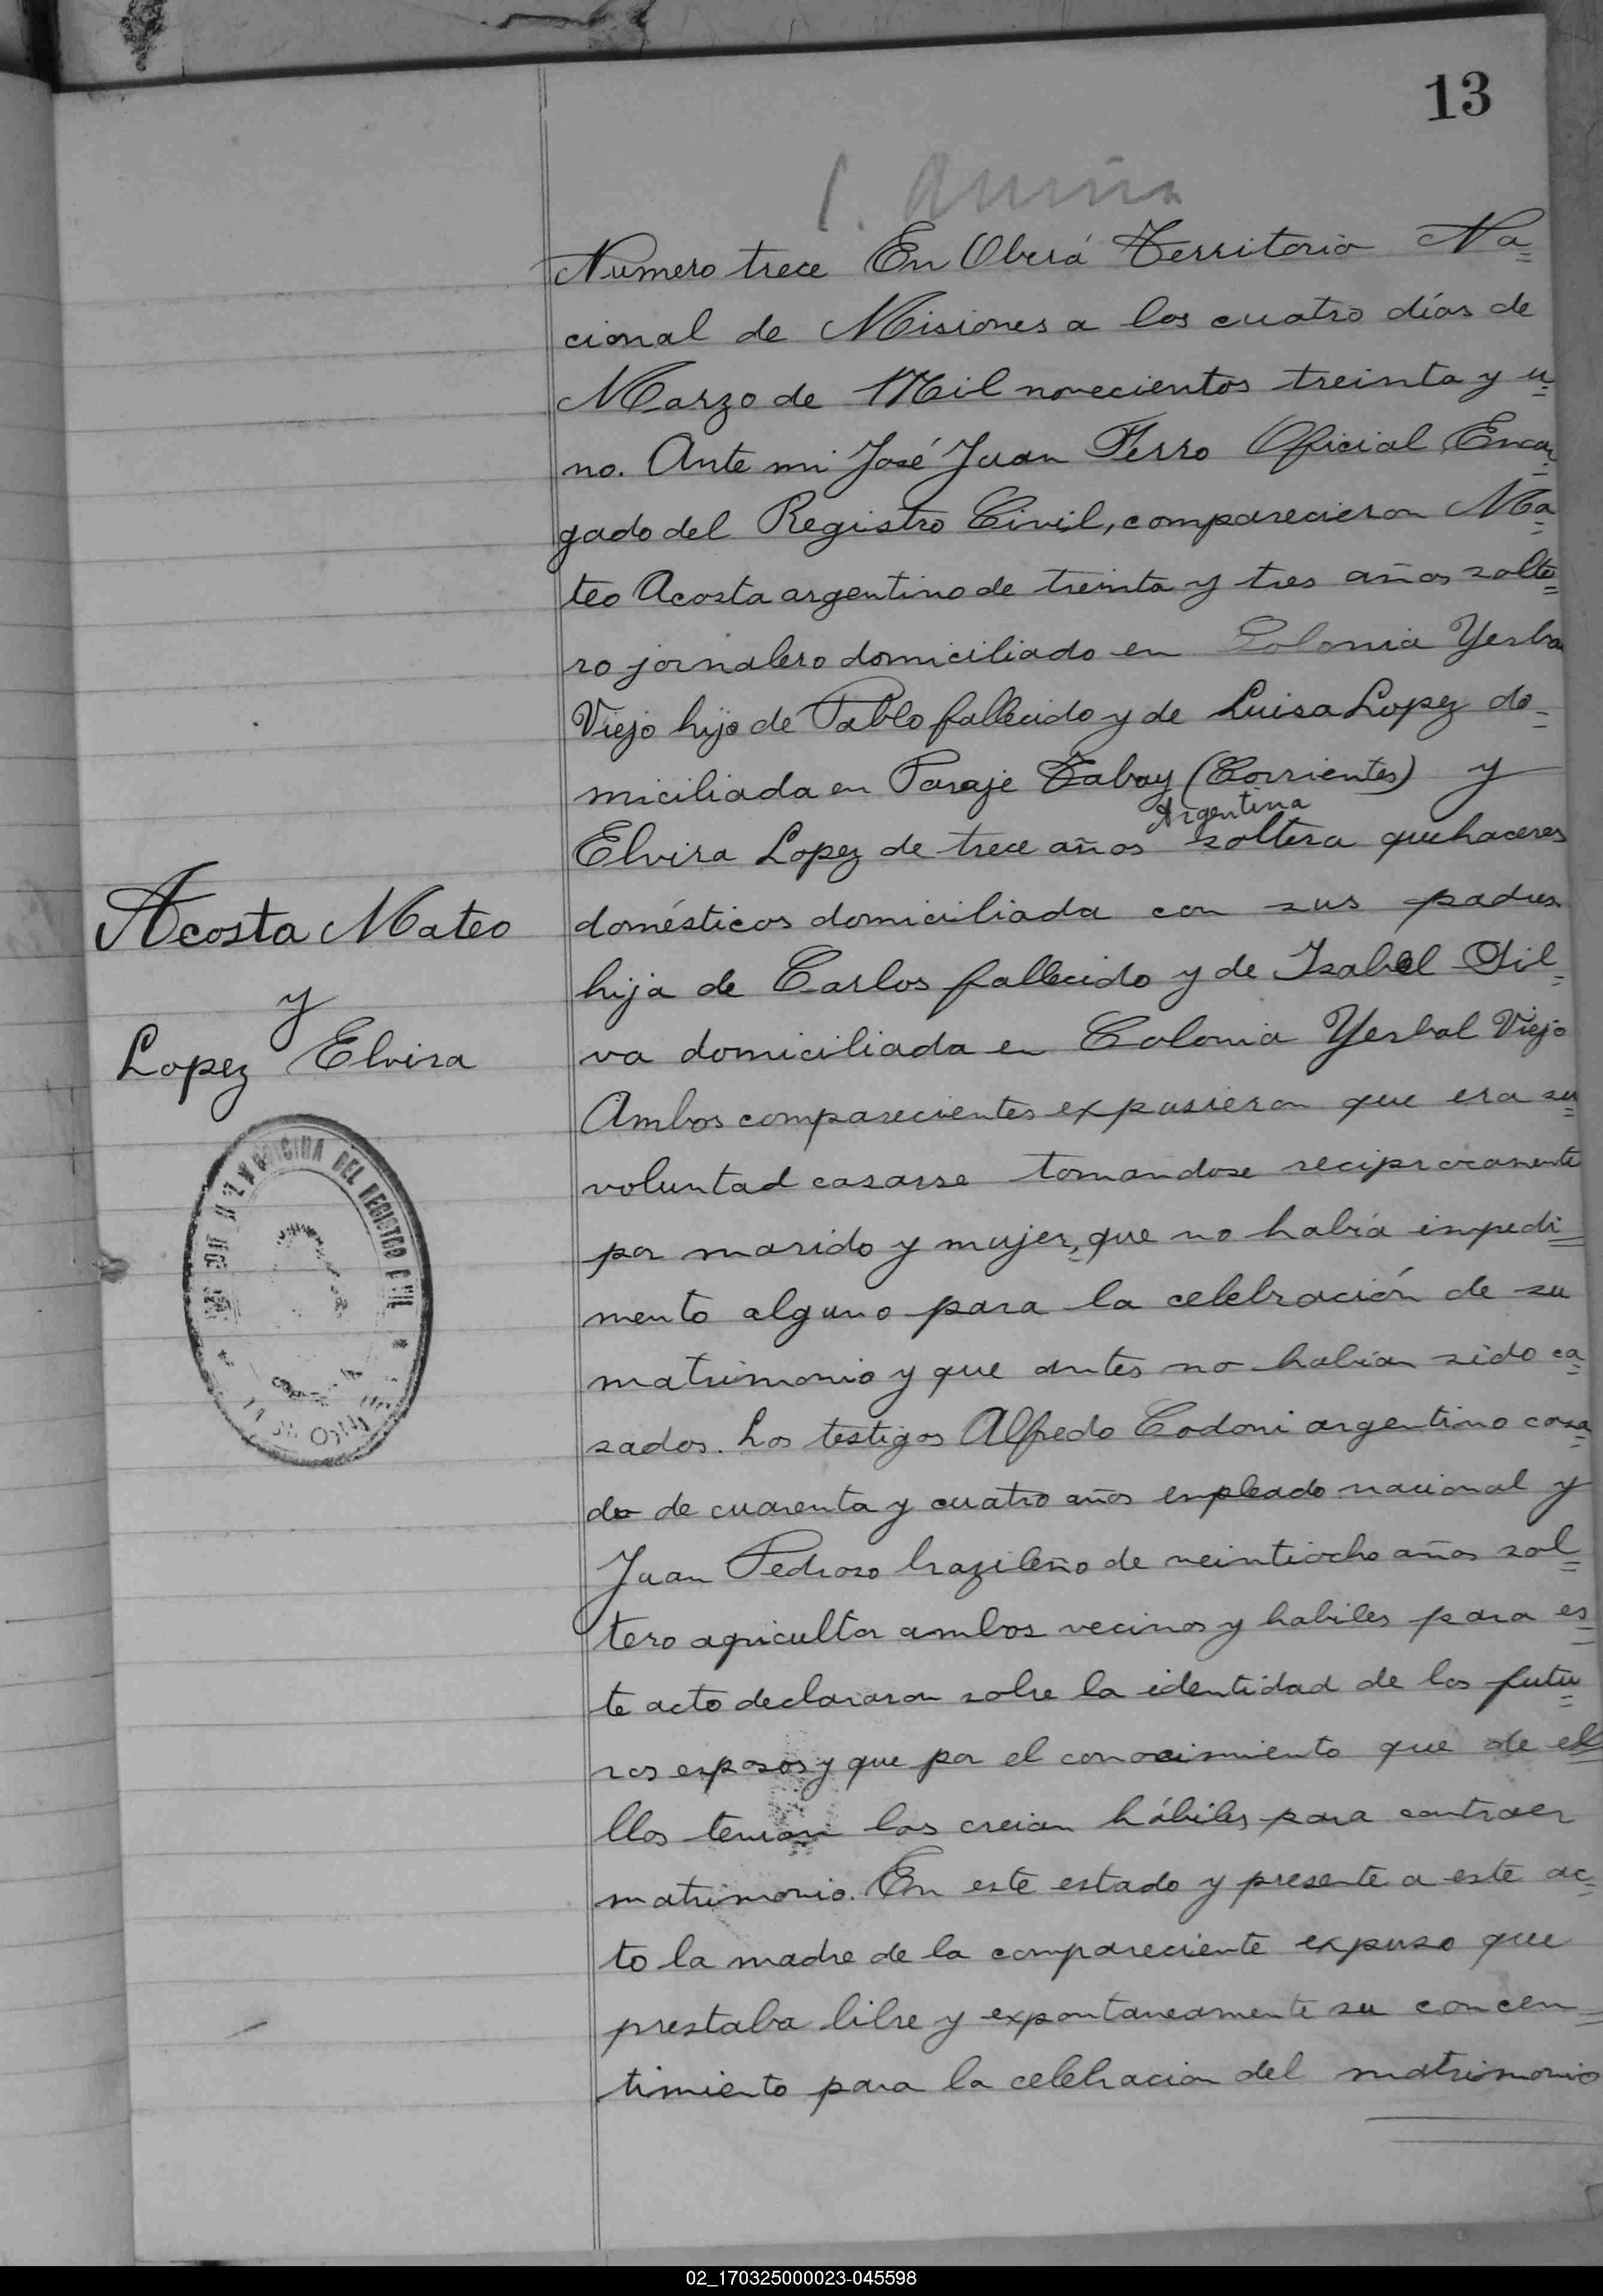 13
Numero trece En Oberá Territorio Na=
cional de Misiones a los cuatro días de
Marzo de Mil novecientos treinta y u=
no. Ante mi José Juan Ferro Oficial Encar=
gado del Registro Civil, comparecieron Ma=
teo Acosta argentino de treinta y tres años solte=
ro jornalero domiciliado en Colonia Yerba
Viejo hijo de Pablo fallecido y de Luisa Lopez do=
miciliada en Paraje Tabay (Corrientes) y
Argentina
Elvira Lopez de trece años soltera quehaceres
domésticos domiciliada con sus padres
hija de Carlos fallecido y de Isabel Sil=
va domiciliada en Colonia Yerbal Viejo
Ambos comparecientes expusieron que era su=
voluntad casarse tomandose reciprocamente
por marido y mujer, que no había impedi=
mento alguno para la celebración de su
matrimonio y que antes no habían sido ca=
sados. Los testigos Alfredo Codoni argentino casa=
do de cuarenta y cuatro años empleado nacional y
Juan Pedrozo brazileño de veintiocho años sol=
tero agricultor ambos vecinos y habiles para es=
te acto declararon sobre la identidad de los futu=
ros esposos y que por el conocimiento que de el=
llos tenian los creian hábiles para contraer
matrimonio. En este estado y presente a este ac=
to la madre de la compareciente expuso que
prestaba libre y expontaneamente su concen=
timiento para la celebracion del matrimonio
Acosta Mateo
y
Lopez Elvira
OFICINA DEL REGISTRO CIVIL
02_170325000023-045598